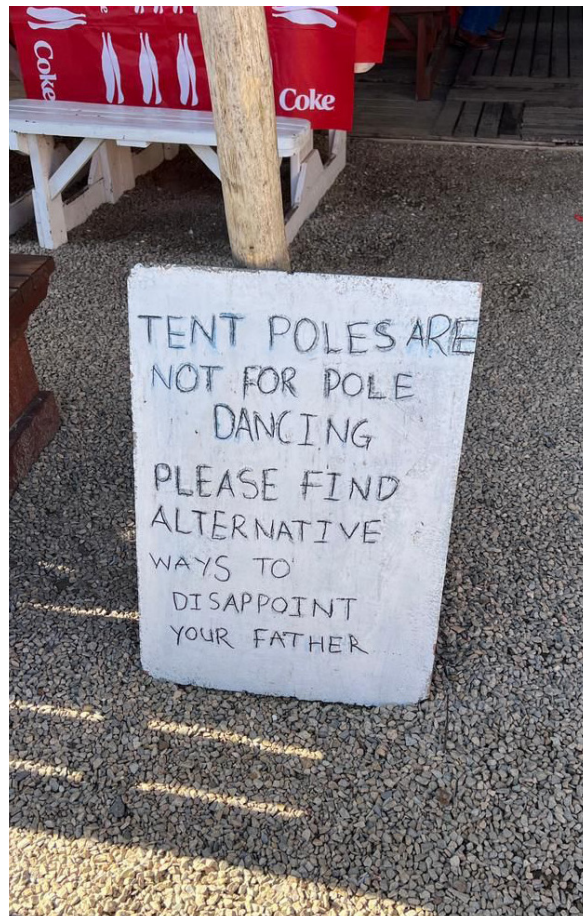 Coke
Coke
TENT POLES ARE
NOT FOR POLE
DANCING
PLEASE FIND
ALTERNATIVE
WAYS TO
DISAPPOINT
YOUR FATHER